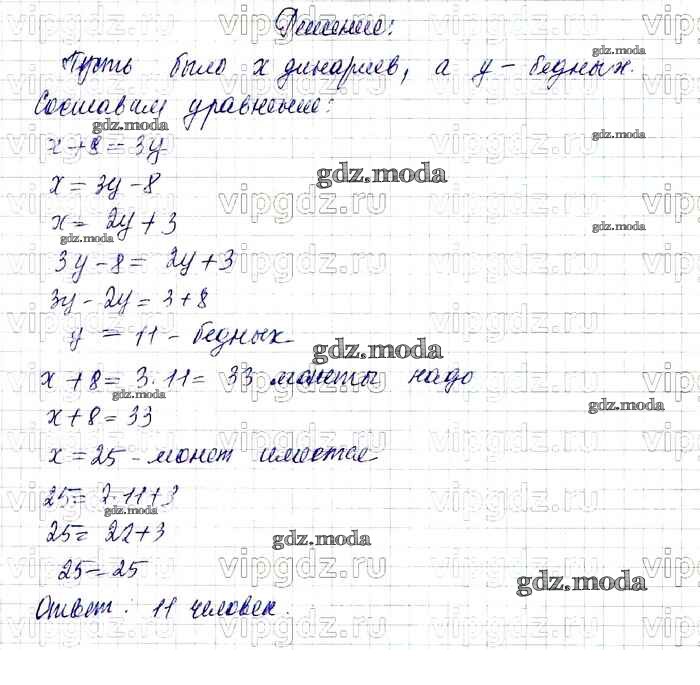 Решение:
Пусть было x динариев, а y - бедных.
Составим уравнение:
x + 8 = 3y
x = 3y - 8
x = 2y + 3
3y - 8 = 2y + 3
3y - 2y = 3 + 8
y = 11 - бедных
x + 8 = 3 · 11 = 33 монеты надо
x + 8 = 33
x = 25 - монет имеется
25 = 2 · 11 + 3
25 = 22 + 3
25 = 25
Ответ: 11 человек.